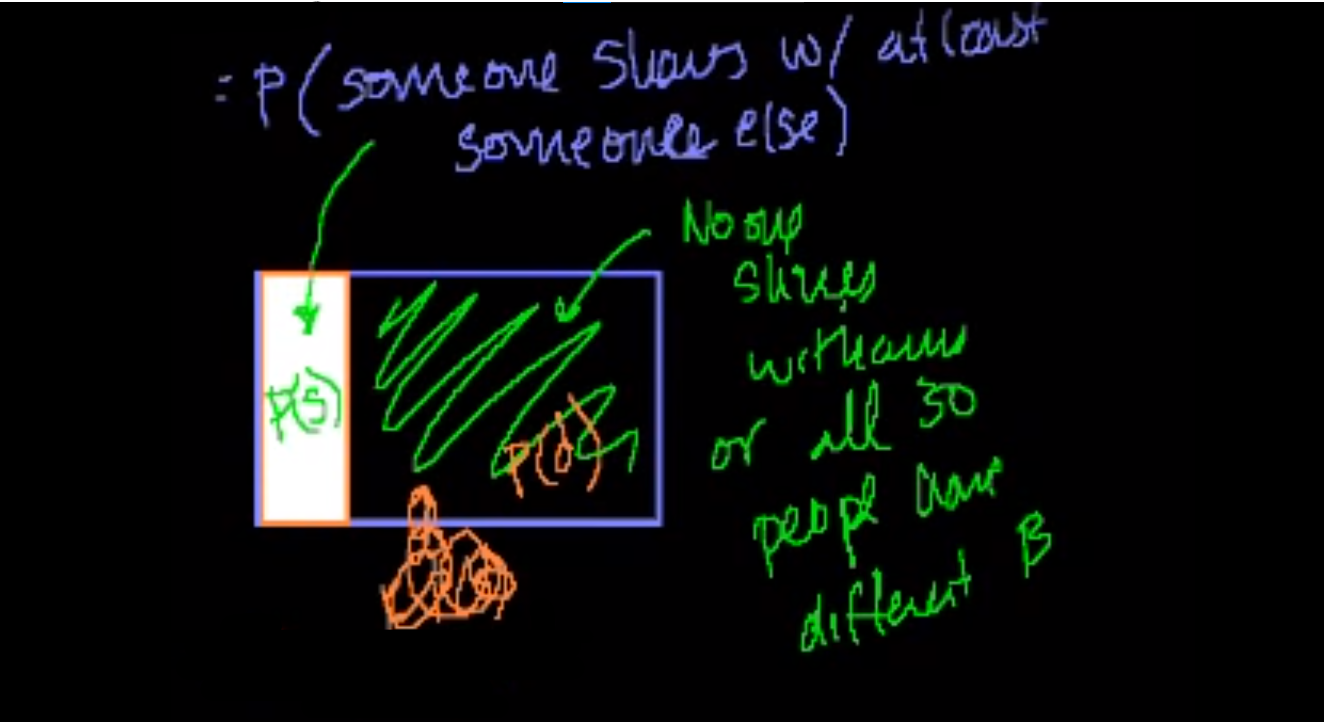 = P(someone shares w/ at least
someone else)
No one
shares
with anyone
P(s)
or all 30
P(d)
people have
different B